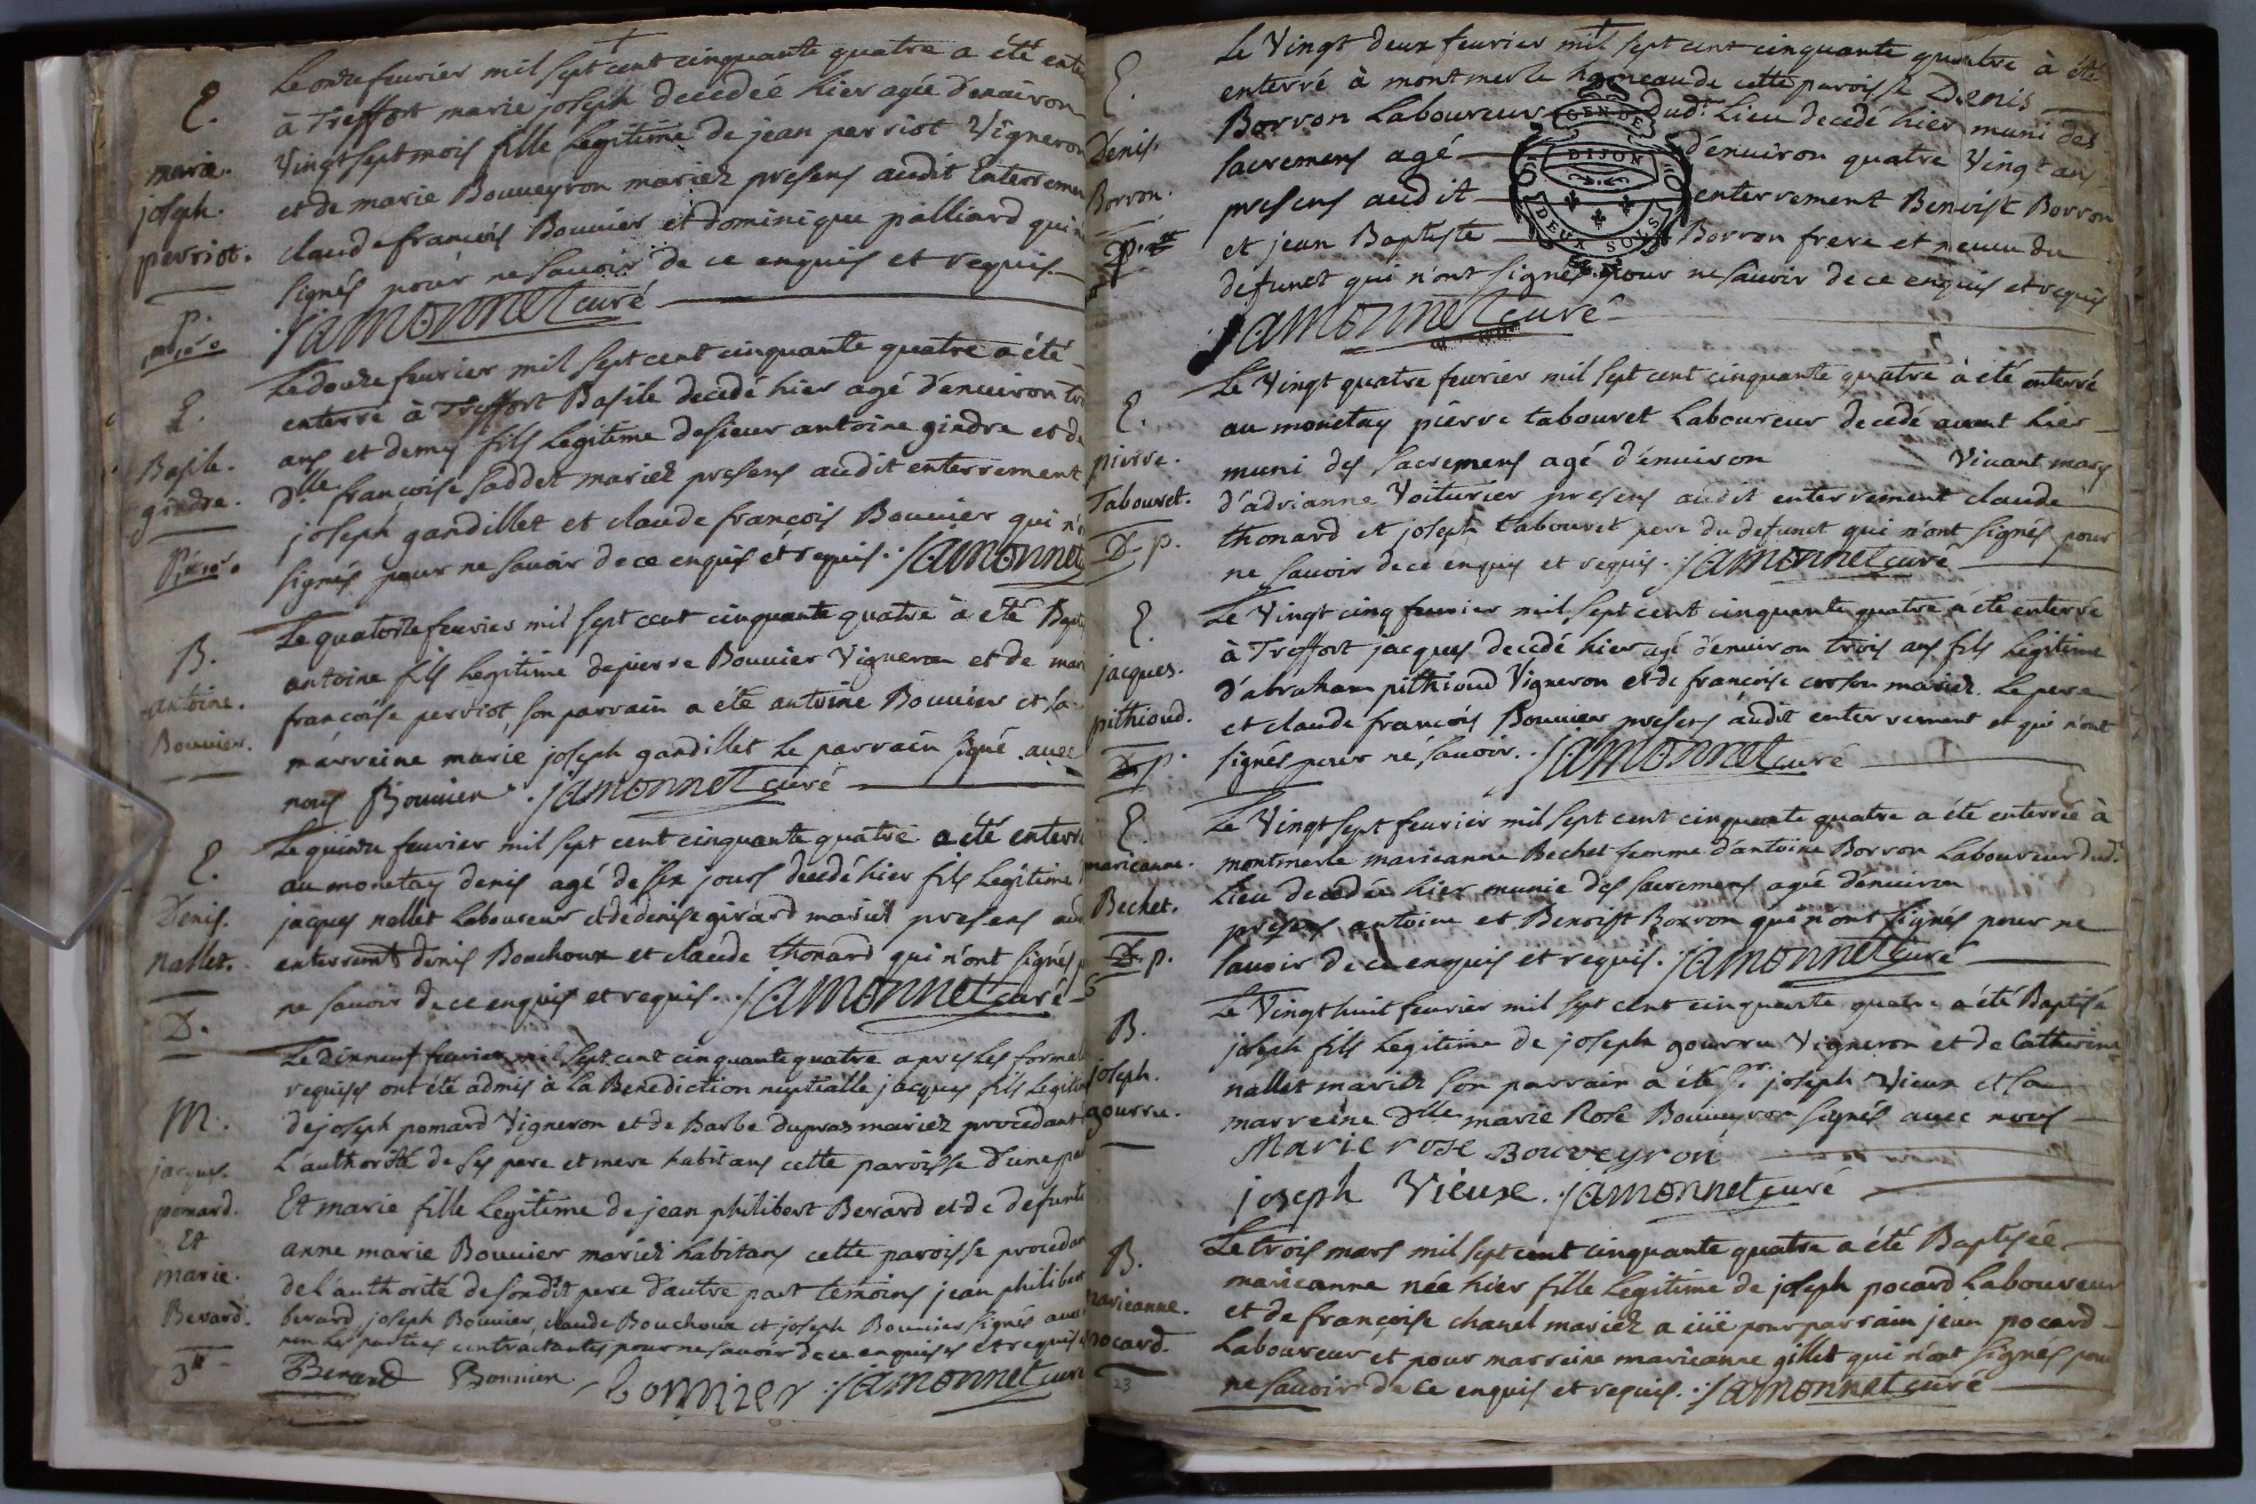 E.
marie.
joseph.
perriot.
Le onze feurier mil sept cent cinquante quatre a été ente
à Treffort marie joseph decedeé hier agée d'enuiron
Vingt sept mois fille Legitime de jean perriot Vigneron
et de marie Bouueyron mariez presens audit Enterremen
claude francois Bouuier et dominique palliard qui n
signés pour ne sauoir de ce enquis et requis.
jamonnet curé
E.
Basile.
gindre.
Le douze feurier mil sept cent cinquante quatre a été
enterré à Treffort Basile decedé hier agé d'enuiron tro
ans et demy fils Legitime de sieur antoine gindre et de
dlle françoise saddet mariez presens audit enterrement
joseph gandillet et claude françois Bouuier qui n'o
signés pour ne sauoir de ce enquis et requis. jamonnet
B.
antoine.
Bouuier.
Le quatorze feurier mil sept cent cinquante quatre à été Bapti
antoine fils Legitime de pierre Bouuier Vigneron et de mar
françoise perriot, son parrain a été antoine Bouuier et sa
marreine marie joseph gandillet Le parrain signé auec
nous Bouuier jamonnet curé
E.
Denis.
nallet.
D.
Le quinze feurier mil sept cent cinquante quatre a été enterr
au monetay denis agé de six jours decedé hier fils Legitime
jacques nallet Laboureur et de denise girard mariez presens aud
enterremt denis Bouchoux et claude thonard qui n'ont signés p
ne sauoir de ce enquis et requis. jamonnet curé
M.
jacques.
pomard.
Et
marie.
Berard.
Le dixneuf feurier mil sept cent cinquante quatre apres Les formal
requises ont été admis à La Benediction nuptialle jacques fils Legitim
de joseph pomard Vigneron et de Barbe dupras mariez procedant
L'authorité de ses pere et mere habitans cette paroisse d'une pa
Et marie fille Legitime de jean philibert Berard et de defunte
anne marie Bouuier mariez habitans cette paroisse procedan
de L'authorité de son dit pere d'autre part temoins jean philibert
berard, joseph Bouuier, claude Bouchoux et joseph Bouuier signés auec
non Les parties contractantes pour ne sauoir de ce enquises et requises
Berard Bouuier bouuier jamonnet curé
E.
Denis.
Borron.
Le Vingt deux feurier mil sept cent cinquante quatre à été
enterré à montmerle hameau de cette paroisse Denis
Borron Laboureur dudt Lieu decedé hier muni des
sacremens agé d'enuiron quatre Vingt ans
presens audit enterrement Benoist Borron
et jean Baptiste Borron frere et neueu du
defunct qui n'ont signés pour ne sauoir de ce enquis et requis
jamonnet curé
GEN DE
DIJON
DEUX SOLS
E.
pierre.
Tabouret.
D. p.
Le Vingt quatre feurier mil sept cent cinquante quatre à été enterré
au monetay pierre tabouret Laboureur decedé auant hier
muni des sacremens agé d'enuiron Viuant mary
d'adrianne Voiturier presens audit enterrement claude
thonard et joseph tabouret pere du defunct qui n'ont signés pour
ne sauoir de ce enquis et requis. jamonnet curé
E.
jacques.
pithioud.
D. p.
Le Vingt cinq feurier mil sept cent cinquante quatre a été enterré
à Treffort jacques decedé hier agé d'enuiron trois ans fils Legitime
d'abraham pithioud Vigneron et de françoise mariez. Le pere
et claude francois Bouuier presens audit enterrement et qui n'ont
signés pour ne sauoir. jamonnet curé
E.
marieanne.
Bechet.
D. p.
Le Vingt sept feurier mil sept cent cinquante quatre a été enterrée à
montmerle marieanne Bechet femme d'antoine Borron Laboureur dudt
Lieu decedée hier munie des sacremens agée d'enuiron
presens antoine et Benoist Borron qui n'ont signés pour ne
sauoir de ce enquis et requis. jamonnet curé
B.
joseph.
gourru.
Le Vingt huit feurier mil sept cent cinquante quatre a été Baptisé
joseph fils Legitime de joseph gourru Vigneron et de Catherine
nallet mariez son parrain a été sr. joseph Vieux et sa
marreine dlle marie Rose Bouueyron signés auec nous
Marie rose Bouveyron
joseph Vieux. jamonnet curé
B.
marieanne.
pocard.
23
Le trois mars mil sept cent cinquante quatre a été Baptisée
marieanne née hier fille Legitime de joseph pocard Laboureur
et de françoise chanel mariez a eüe pour parrain jean pocard
Laboureur et pour marreine marieanne gillet qui n'ont signés pour
ne sauoir de ce enquis et requis. jamonnet curé